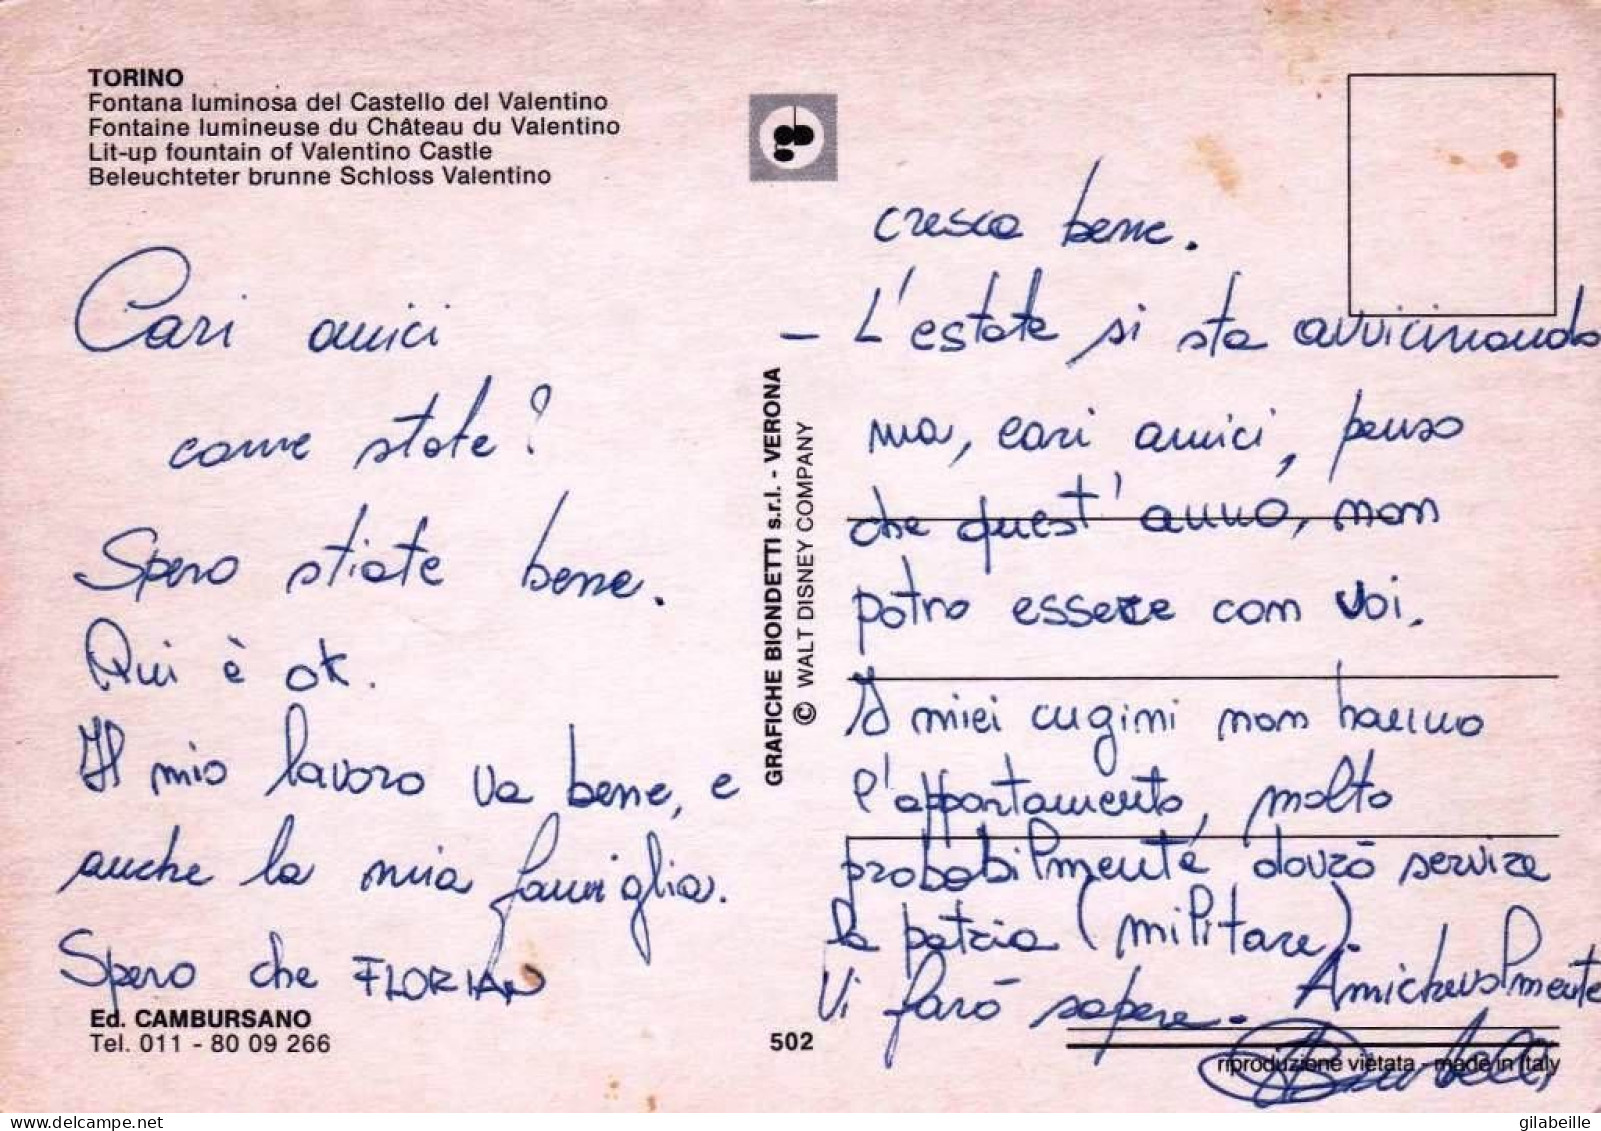 TORINO
Fontana luminosa del Castello del Valentino
Fontaine lumineuse du Château du Valentino
Lit-up fountain of Valentino Castle
Beleuchteter brunne Schloss Valentino
Cari amici
come state?
Spero stiate bene.
Qui è ok.
Il mio lavoro va bene, e
anche la mia famiglia.
Spero che FLORIAN
Ed. CAMBURSANO
Tel. 011 - 80 09 266
GRAFICHE BIONDETTI s.r.l. - VERONA
© WALT DISNEY COMPANY
502
cresca bene.
- L'estate si sta avvicinando
ma, cari amici, penso
che quest'anno, non
potrò essere con voi.
I miei cugini non hanno
l'appartamento, molto
probabilmente dovrò servire
la patria (militare).
Vi farò sapere. Amichevolmente
riproduzione vietata - made in Italy
delcampe.net
gilabeille